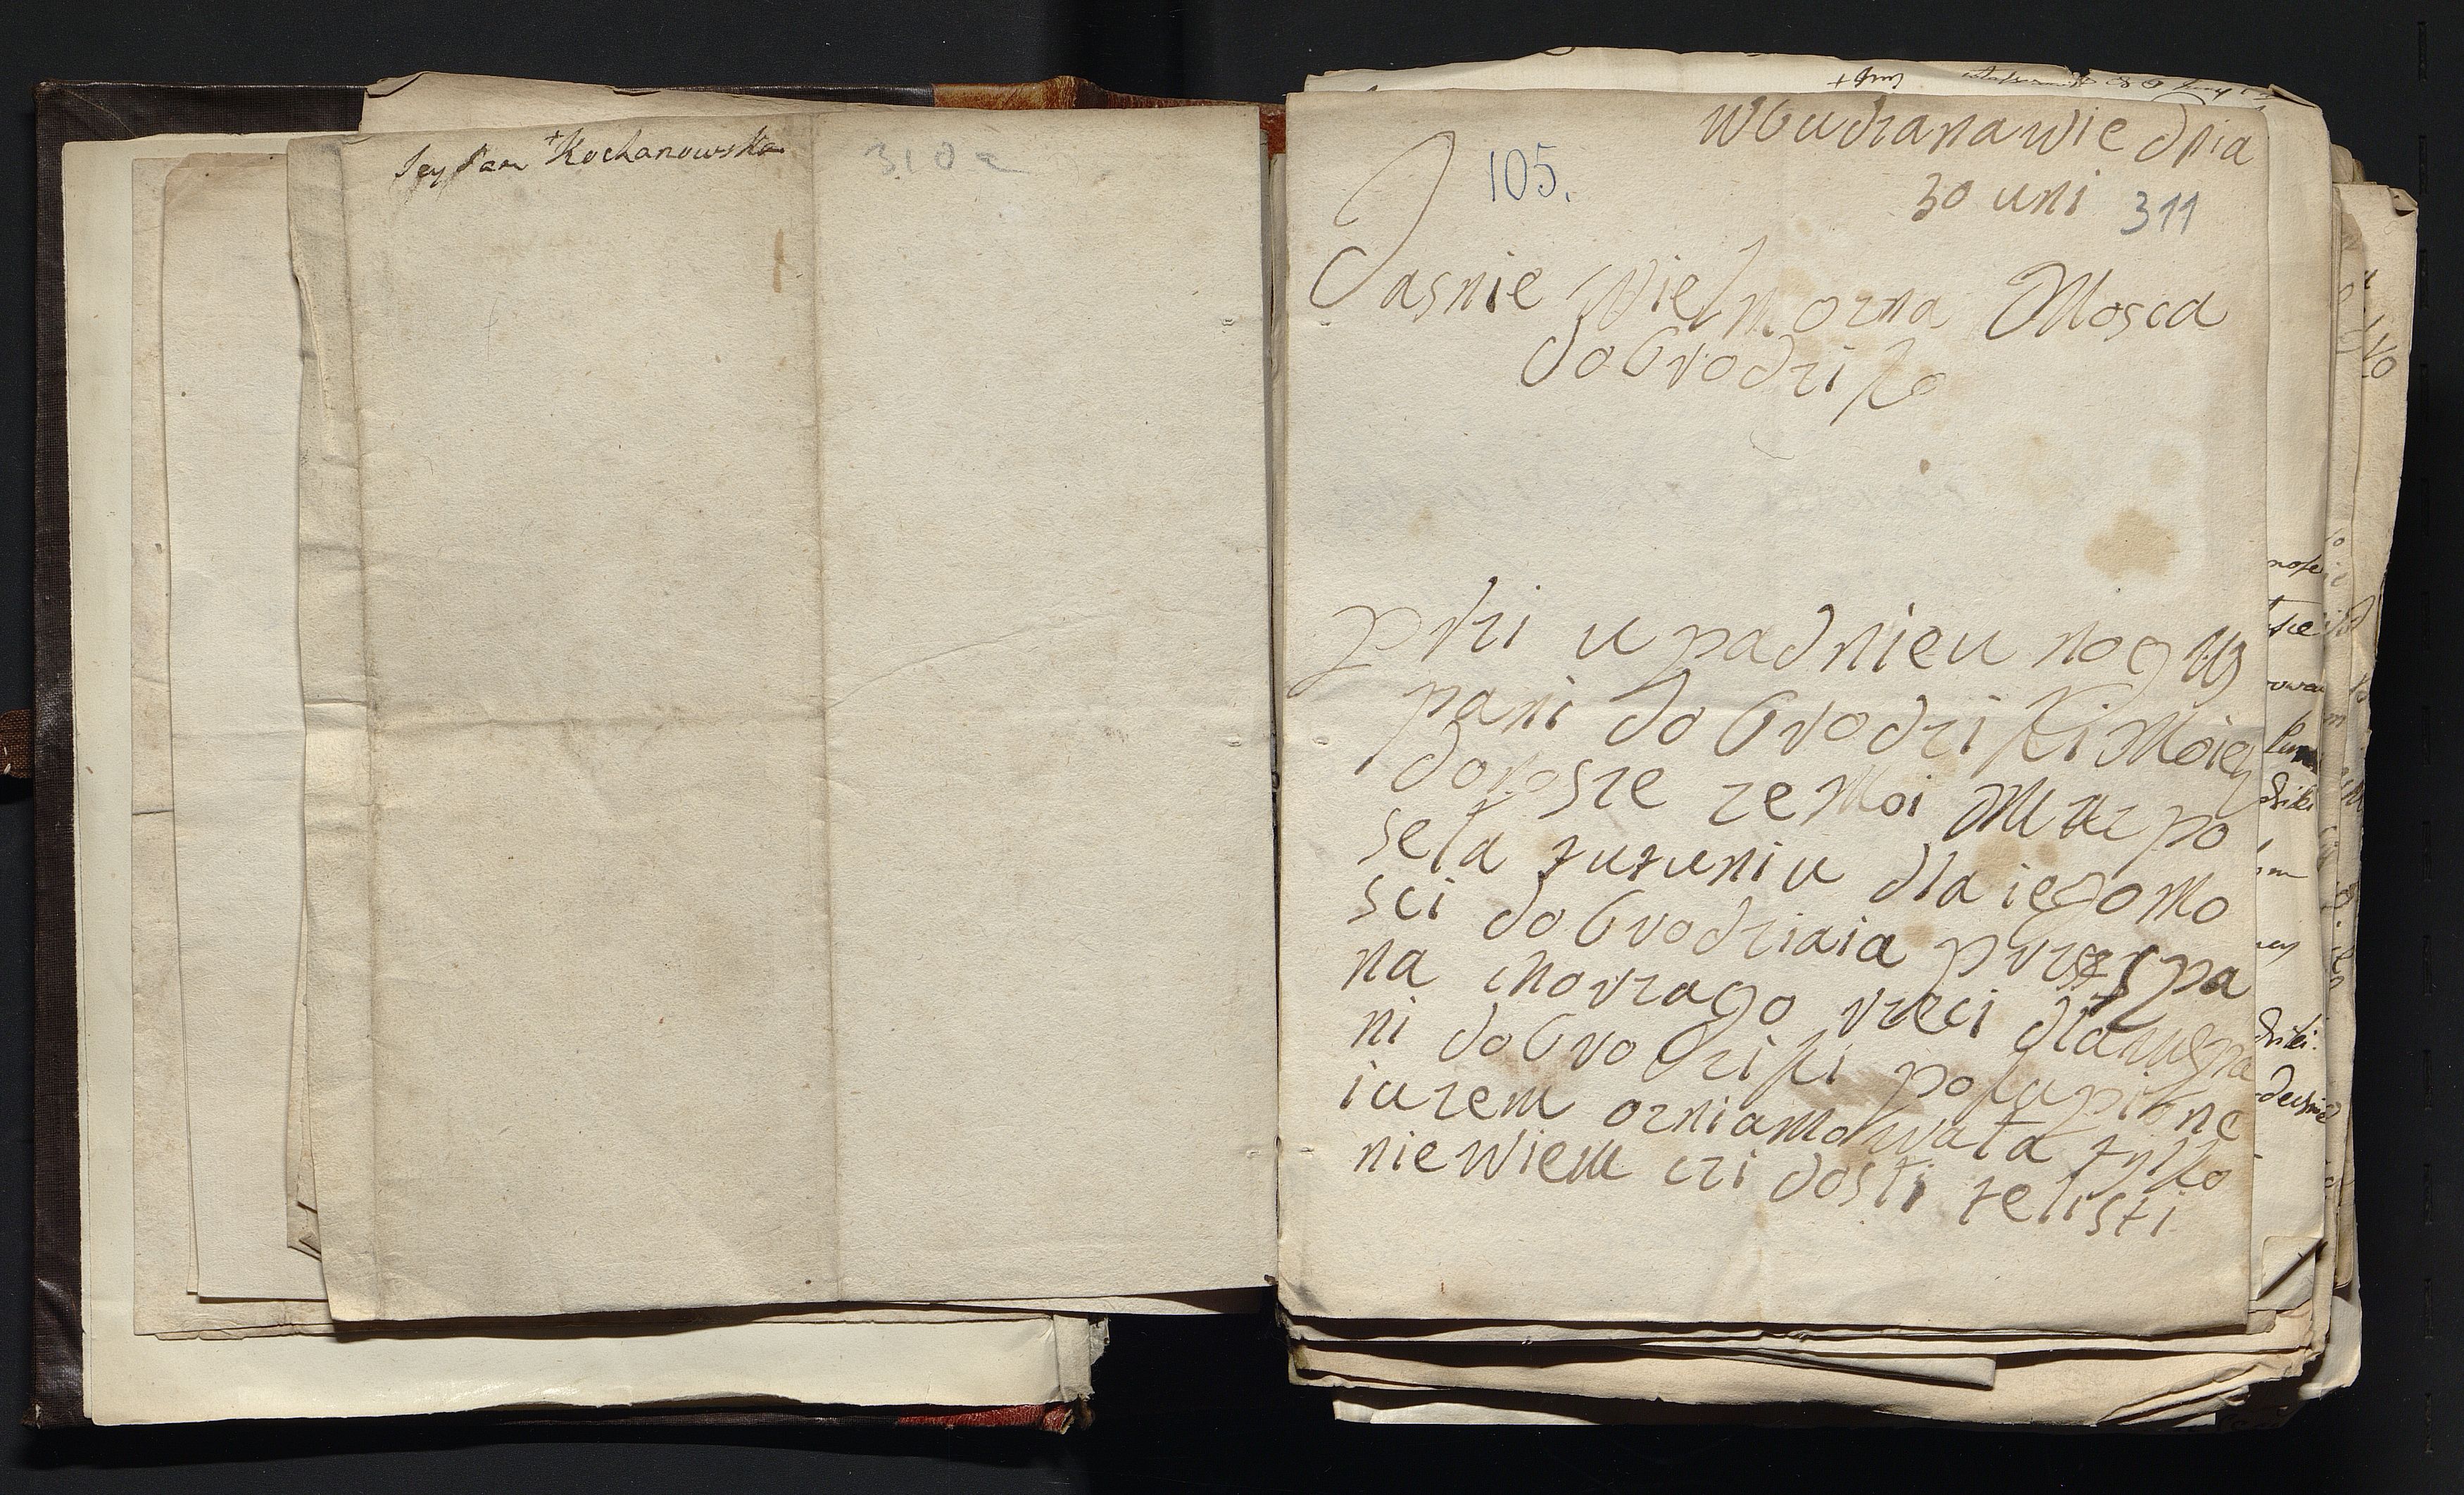 Kochanowska
310a
105.
w Gudzanawie dnia
30 uni 311
Jasnie Wielmozna Moscia
dobrodziko
przi upadnieu nog WJ
pani dobrodziki Moiey
donosze ze Moi Mąz po
seła tutuniu dla iego Mo
sci dobrodziaia przes pa
na chorzago rzeci dla
ni dobrodziki pokupione
iuzem ozniamowała tylko
nie wiem czi dosli te listi